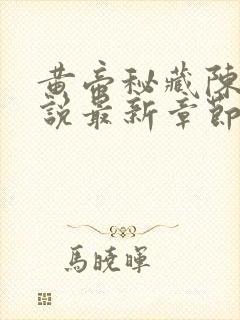 黄帝秘藏陳
說最新章節
馬曉暉